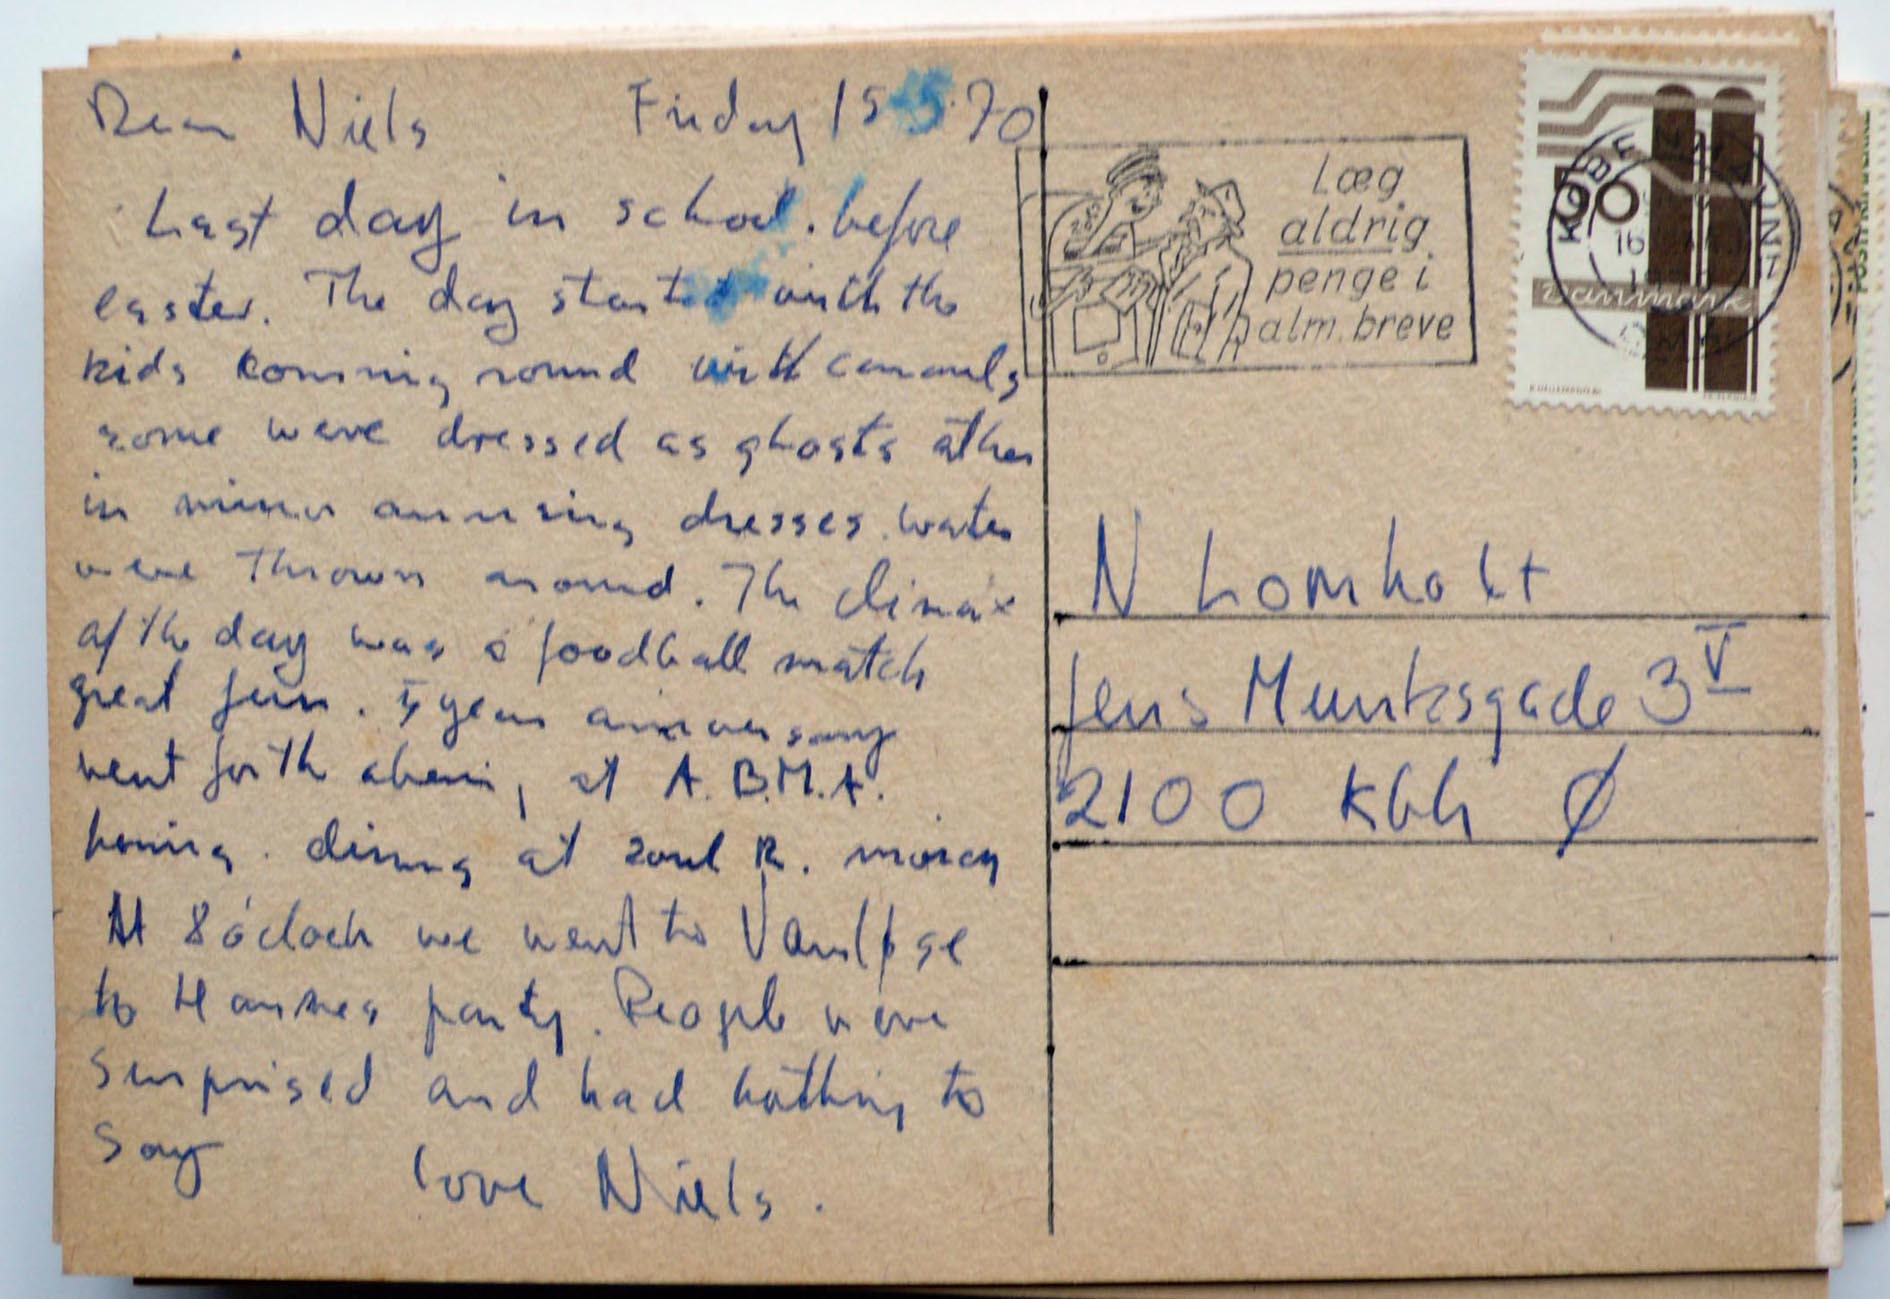 Dear Niels Friday 15.5.70
Last day in school. before
easter. The day started with the
kids komming round with
some were dressed as ghosts other
in minor amusing dresses. water
were thrown around. The climax
of the day was a foodball match
great fun. 5 year
went forth, at A.B.M.A.
at R.
At 8 o'clock we went to Vanløse
to Hannes party. People were
surprised and had nothing to
say love Niels.
Læg
aldrig
penge i
alm. breve
60
Danmark
KØBENHAVN
N Lomholt
Jens Munksgade 3 V
2100 Kbh Ø